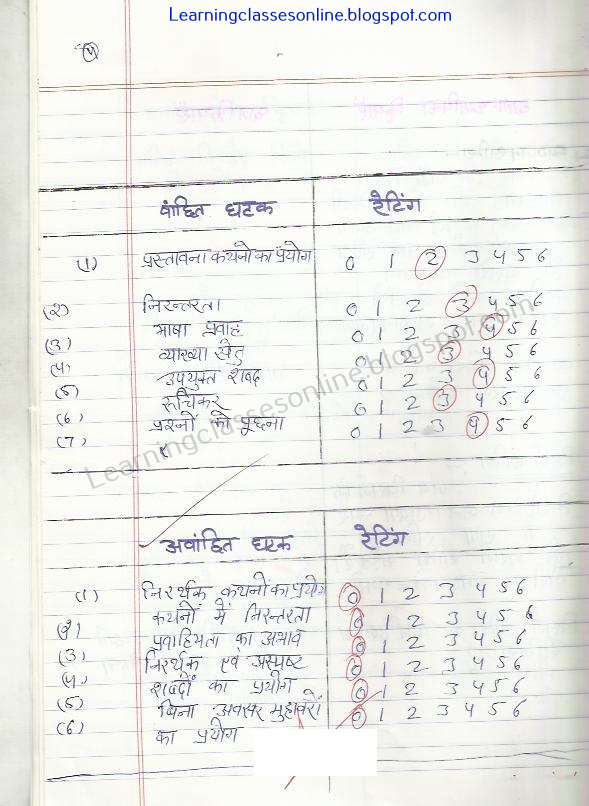 Learningclassesonline.blogspot.com
वांछित घटक रेटिंग
(1) प्रस्तावना कथनो का प्रयोग 0 1 2 3 4 5 6
(2) निरन्तरता 0 1 2 3 4 5 6
(3) भाषा प्रवाह 0 1 2 3 4 5 6
(4) व्याख्या सेतु 0 1 2 3 4 5 6
(5) उपयुक्त शब्द 0 1 2 3 4 5 6
(6) रुचिकर 0 1 2 3 4 5 6
(7) प्रश्नों को पूछना 0 1 2 3 4 5 6
Learningclassesonline.blogspot.com
अवांछित घटक रेटिंग
(1) निरर्थक कथनों का प्रयोग 0 1 2 3 4 5 6
(2) कथनों में निरन्तरता 0 1 2 3 4 5 6
(3) प्रवाहिमता का अभाव 0 1 2 3 4 5 6
(4) निरर्थक एवं अस्पष्ट 0 1 2 3 4 5 6
(5) शब्दों का प्रयोग 0 1 2 3 4 5 6
(6) बिना अवसर मुहावरों 0 1 2 3 4 5 6
का प्रयोग